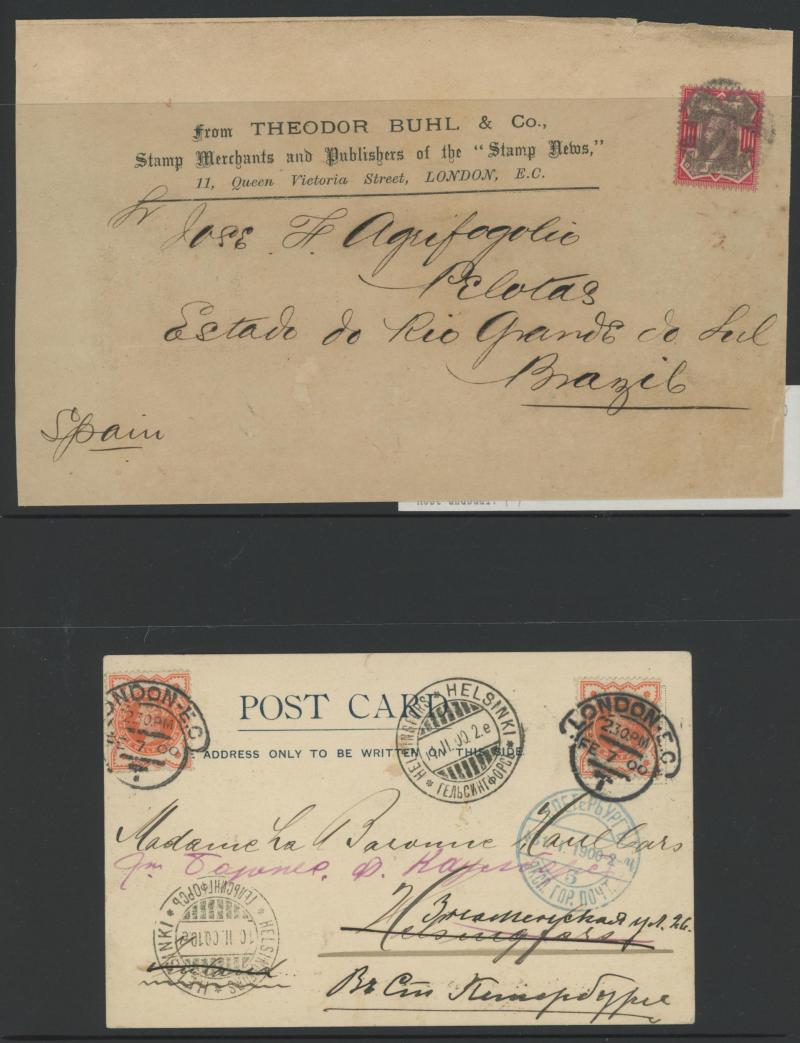 From THEODOR BUHL & Co.,
Stamp Merchants and Publishers of the "Stamp News,"
11, Queen Victoria Street, LONDON, E.C.
Jose F. Agrifogolio
Pelotas
Estado do Rio Grande do Sul
Brazil
Spain
POST CARD
ADDRESS ONLY TO BE WRITTEN ON THIS SIDE
LONDON-E.C
2.30.PM
FE 7 00
HELSINGFORS * HELSINKI * ГЕЛЬСИНГФОРСЪ
II.00.2.e
LONDON-E.C
2.30.PM
FE 7 00
Madame La Baronne Kaulbars
1900
5
ГОР. ПОЧТ.
HELSINGFORS * HELSINKI * ГЕЛЬСИНГФОРСЪ
II.00.10e
Знаменская ул. 26.
Helsingfors
Въ Ст Петербурге